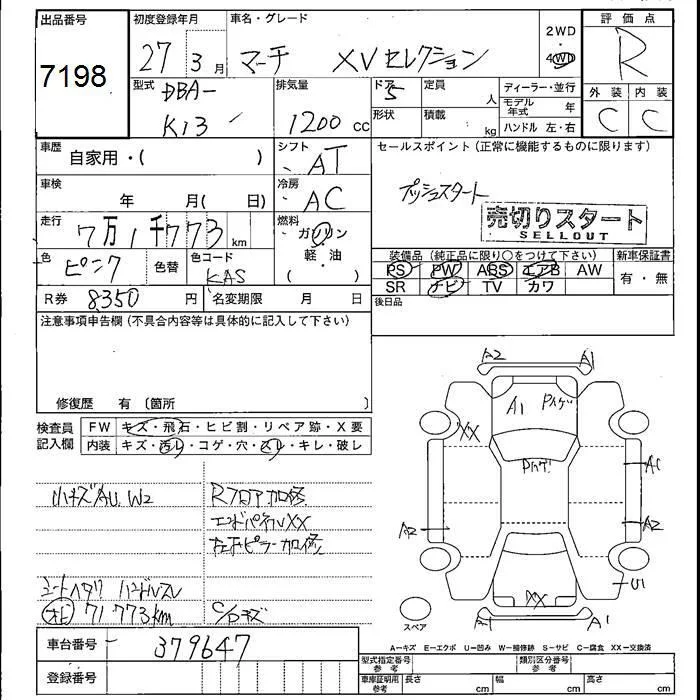 出品番号
7198
初度登録年月
27 3 月
車名・グレード
マーチ XVセレクション
2WD
4WD
評価点
R
外装 内装
C C
型式
DBA-
K13
排気量
1200 cc
ドア 5
形状
定員 人
積載 kg
ディーラー・並行
モデル年式 年
ハンドル 左・右
車歴
自家用・( )
シフト
AT
セールスポイント(正常に機能するものに限ります)
プッシュスタート
売切りスタート
SELLOUT
車検
年 月( 日)
冷房
AC
走行
7万1千773 km
燃料
ガソリン
軽・油
( )
色
ピンク
色替
色コード
KAS
装備品(純正品に限り〇をつけて下さい)
PS PW ABS エアB AW
SR ナビ TV カワ
新車保証書
有・無
R券 8350 円
名変期限 月 日
後日品
注意事項申告欄(不具合内容等は具体的に記入して下さい)
修復歴 有(箇所 )
検査員記入欄
FW キズ・飛石・ヒビ割・リペア跡・X要
内装 キズ・汚レ・コゲ・穴・スレ・キレ・破レ
小キズAU、W2
Rフロア加修
エンドパネルXX
右Rピラー加修
シートヘタリ ハンドルスレ
71,773km
C/Dキズ
A2 A1
A1
XX
A1
A2 A2
U1
XX
A1 A1
スペア
A-キズ E-エクボ U-凹み W-補修跡 S-サビ C-腐食 XX-交換済
車台番号 379647
登録番号
型式指定番号 参考
類別区分番号 参考
車庫証明用 参考
長さ cm 幅 cm 高さ cm